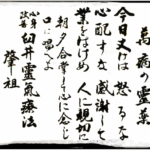 萬病の霊薬
今日丈けは 怒るな
心配すな 感謝して
業をはげめ 人に親切に
朝夕合掌して心に念じ
口に唱へよ
心身改善 臼井靈氣療法
肇祖